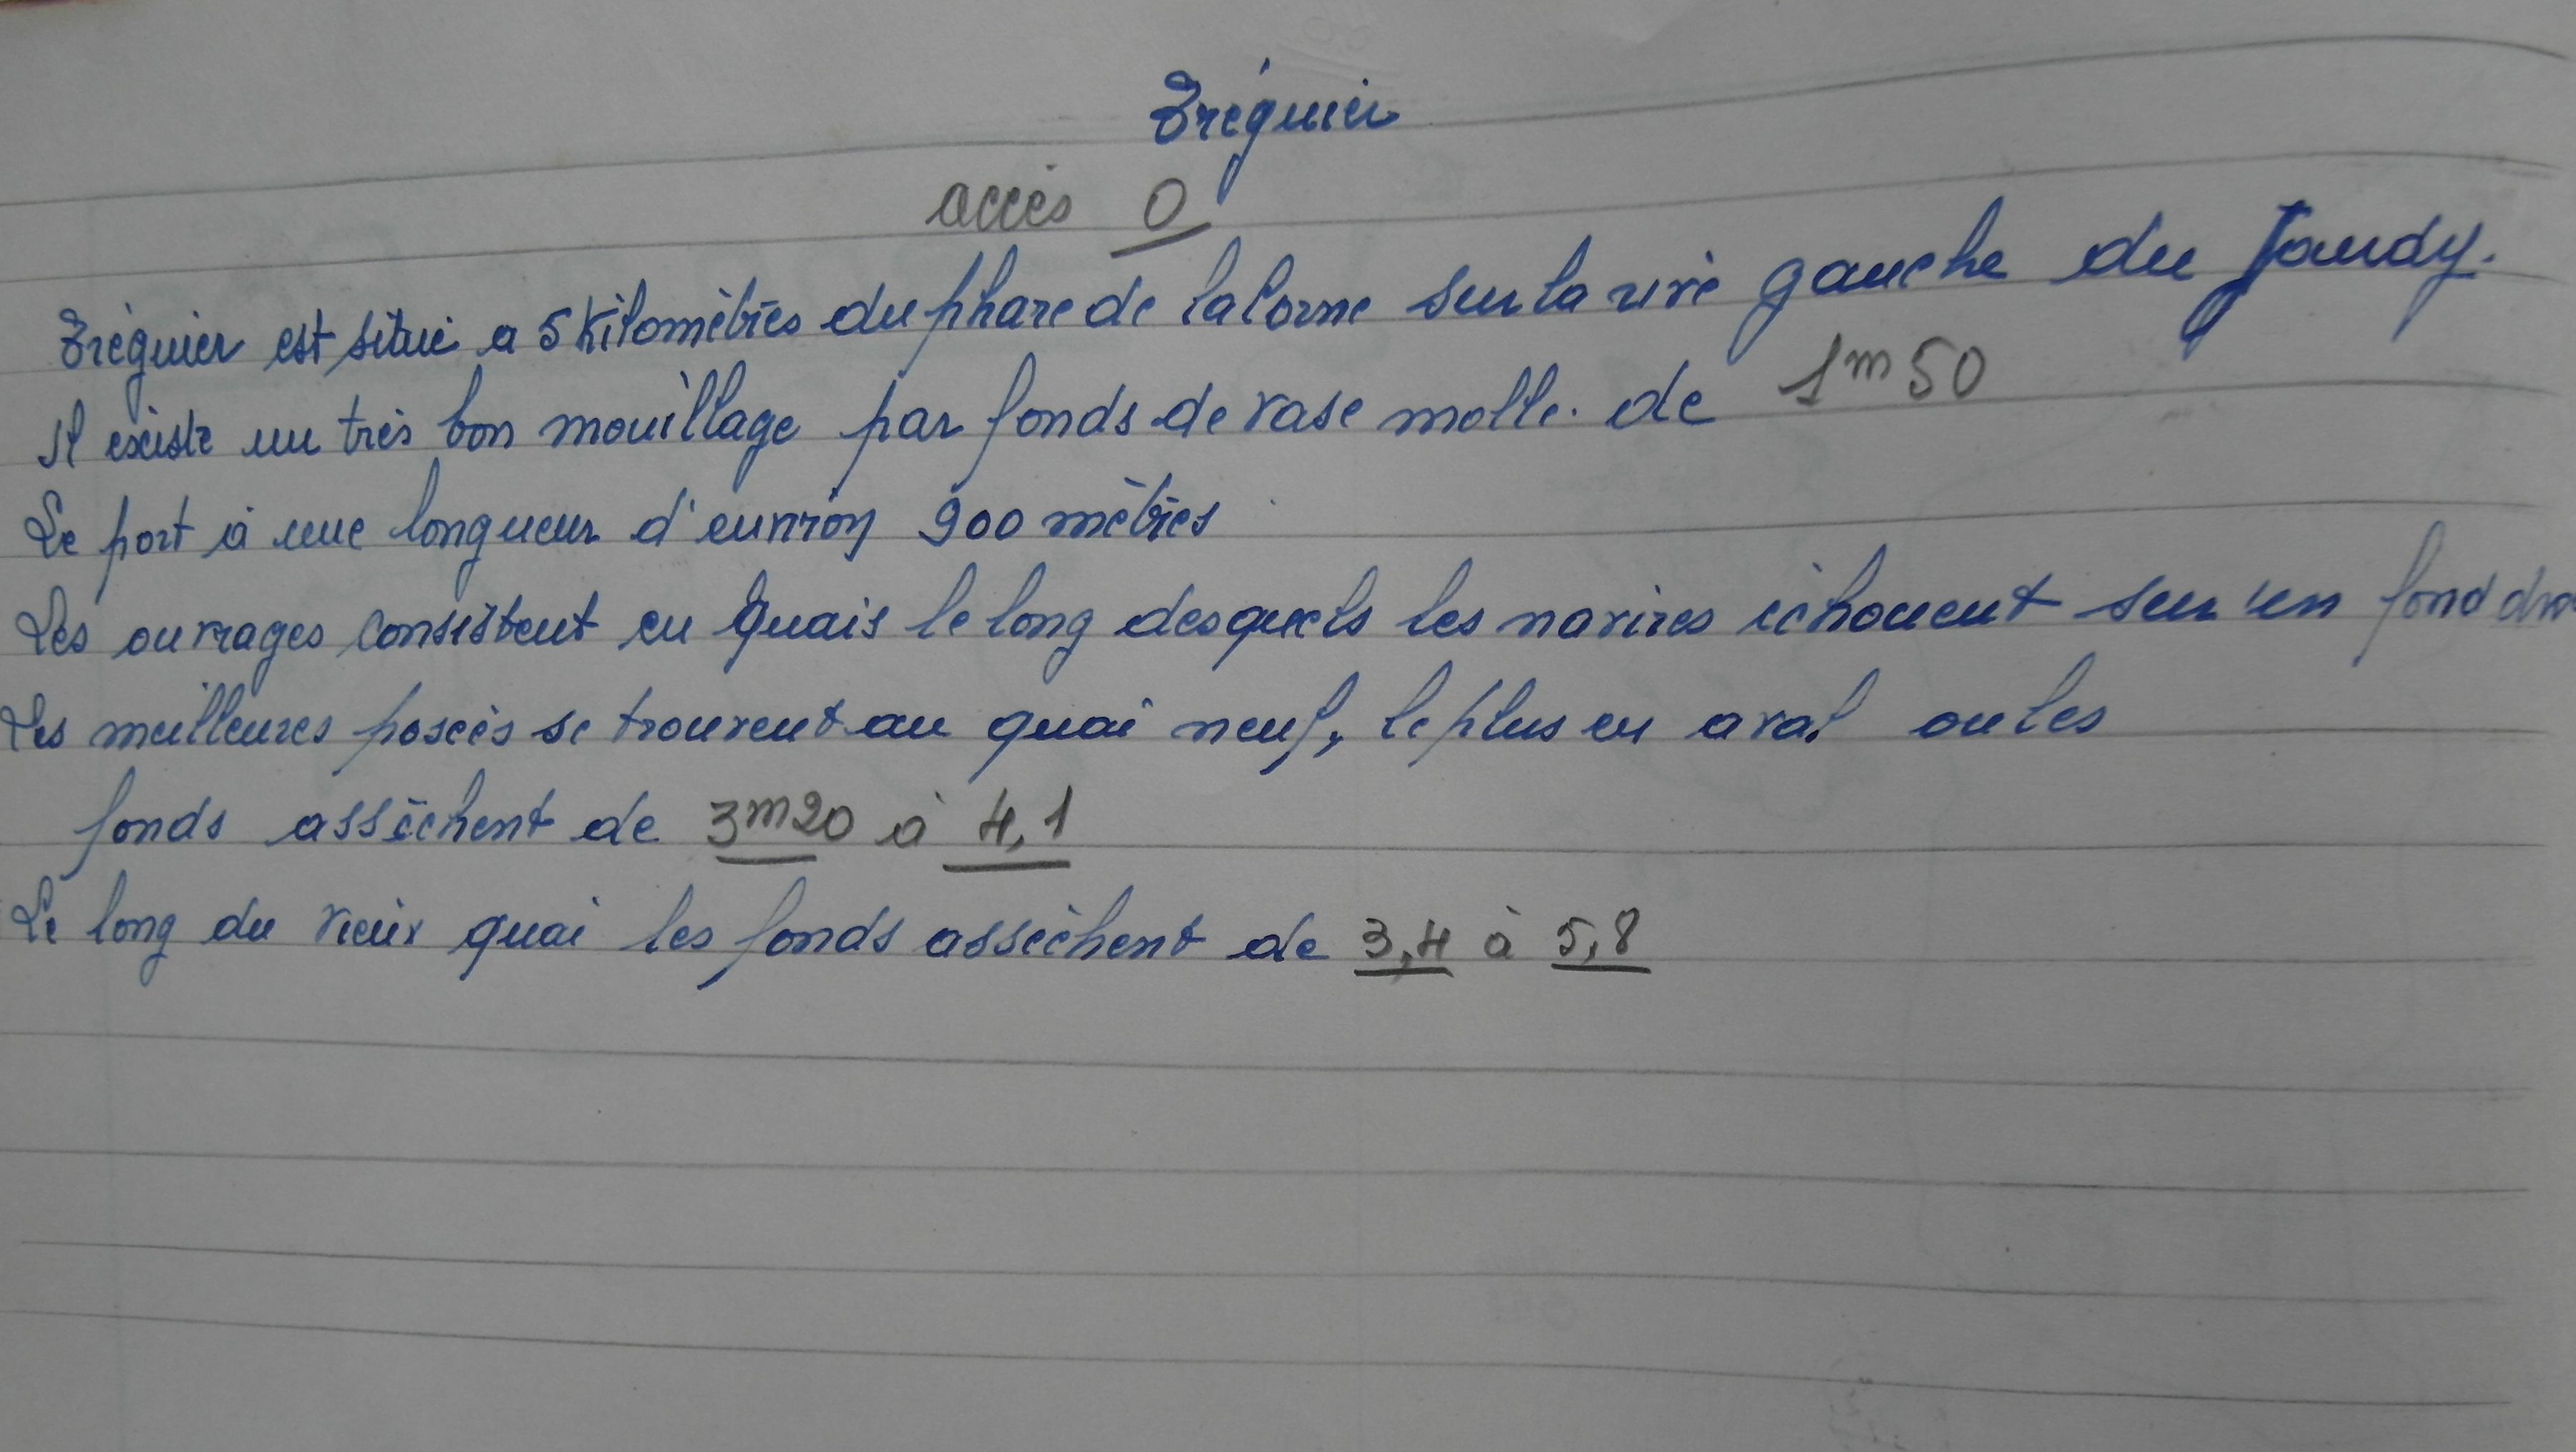 Tréguier
accès 0
Tréguier est situé a 5 Kilomètres du phare de la Corne sur la rive gauche du Jaudy.
Il existe un très bon mouillage par fonds de vase molle. de 1m50
Le port à une longueur d'environ 900 mètres
Les ouvrages consistent en quais le long desquels les navires échouent sur un fond
Les meilleures posées se trouvent au quai neuf, le plus en aval ou les
fonds assèchent de 3m20 à 4,1
Le long du vieux quai les fonds assèchent de 3,4 à 5,8